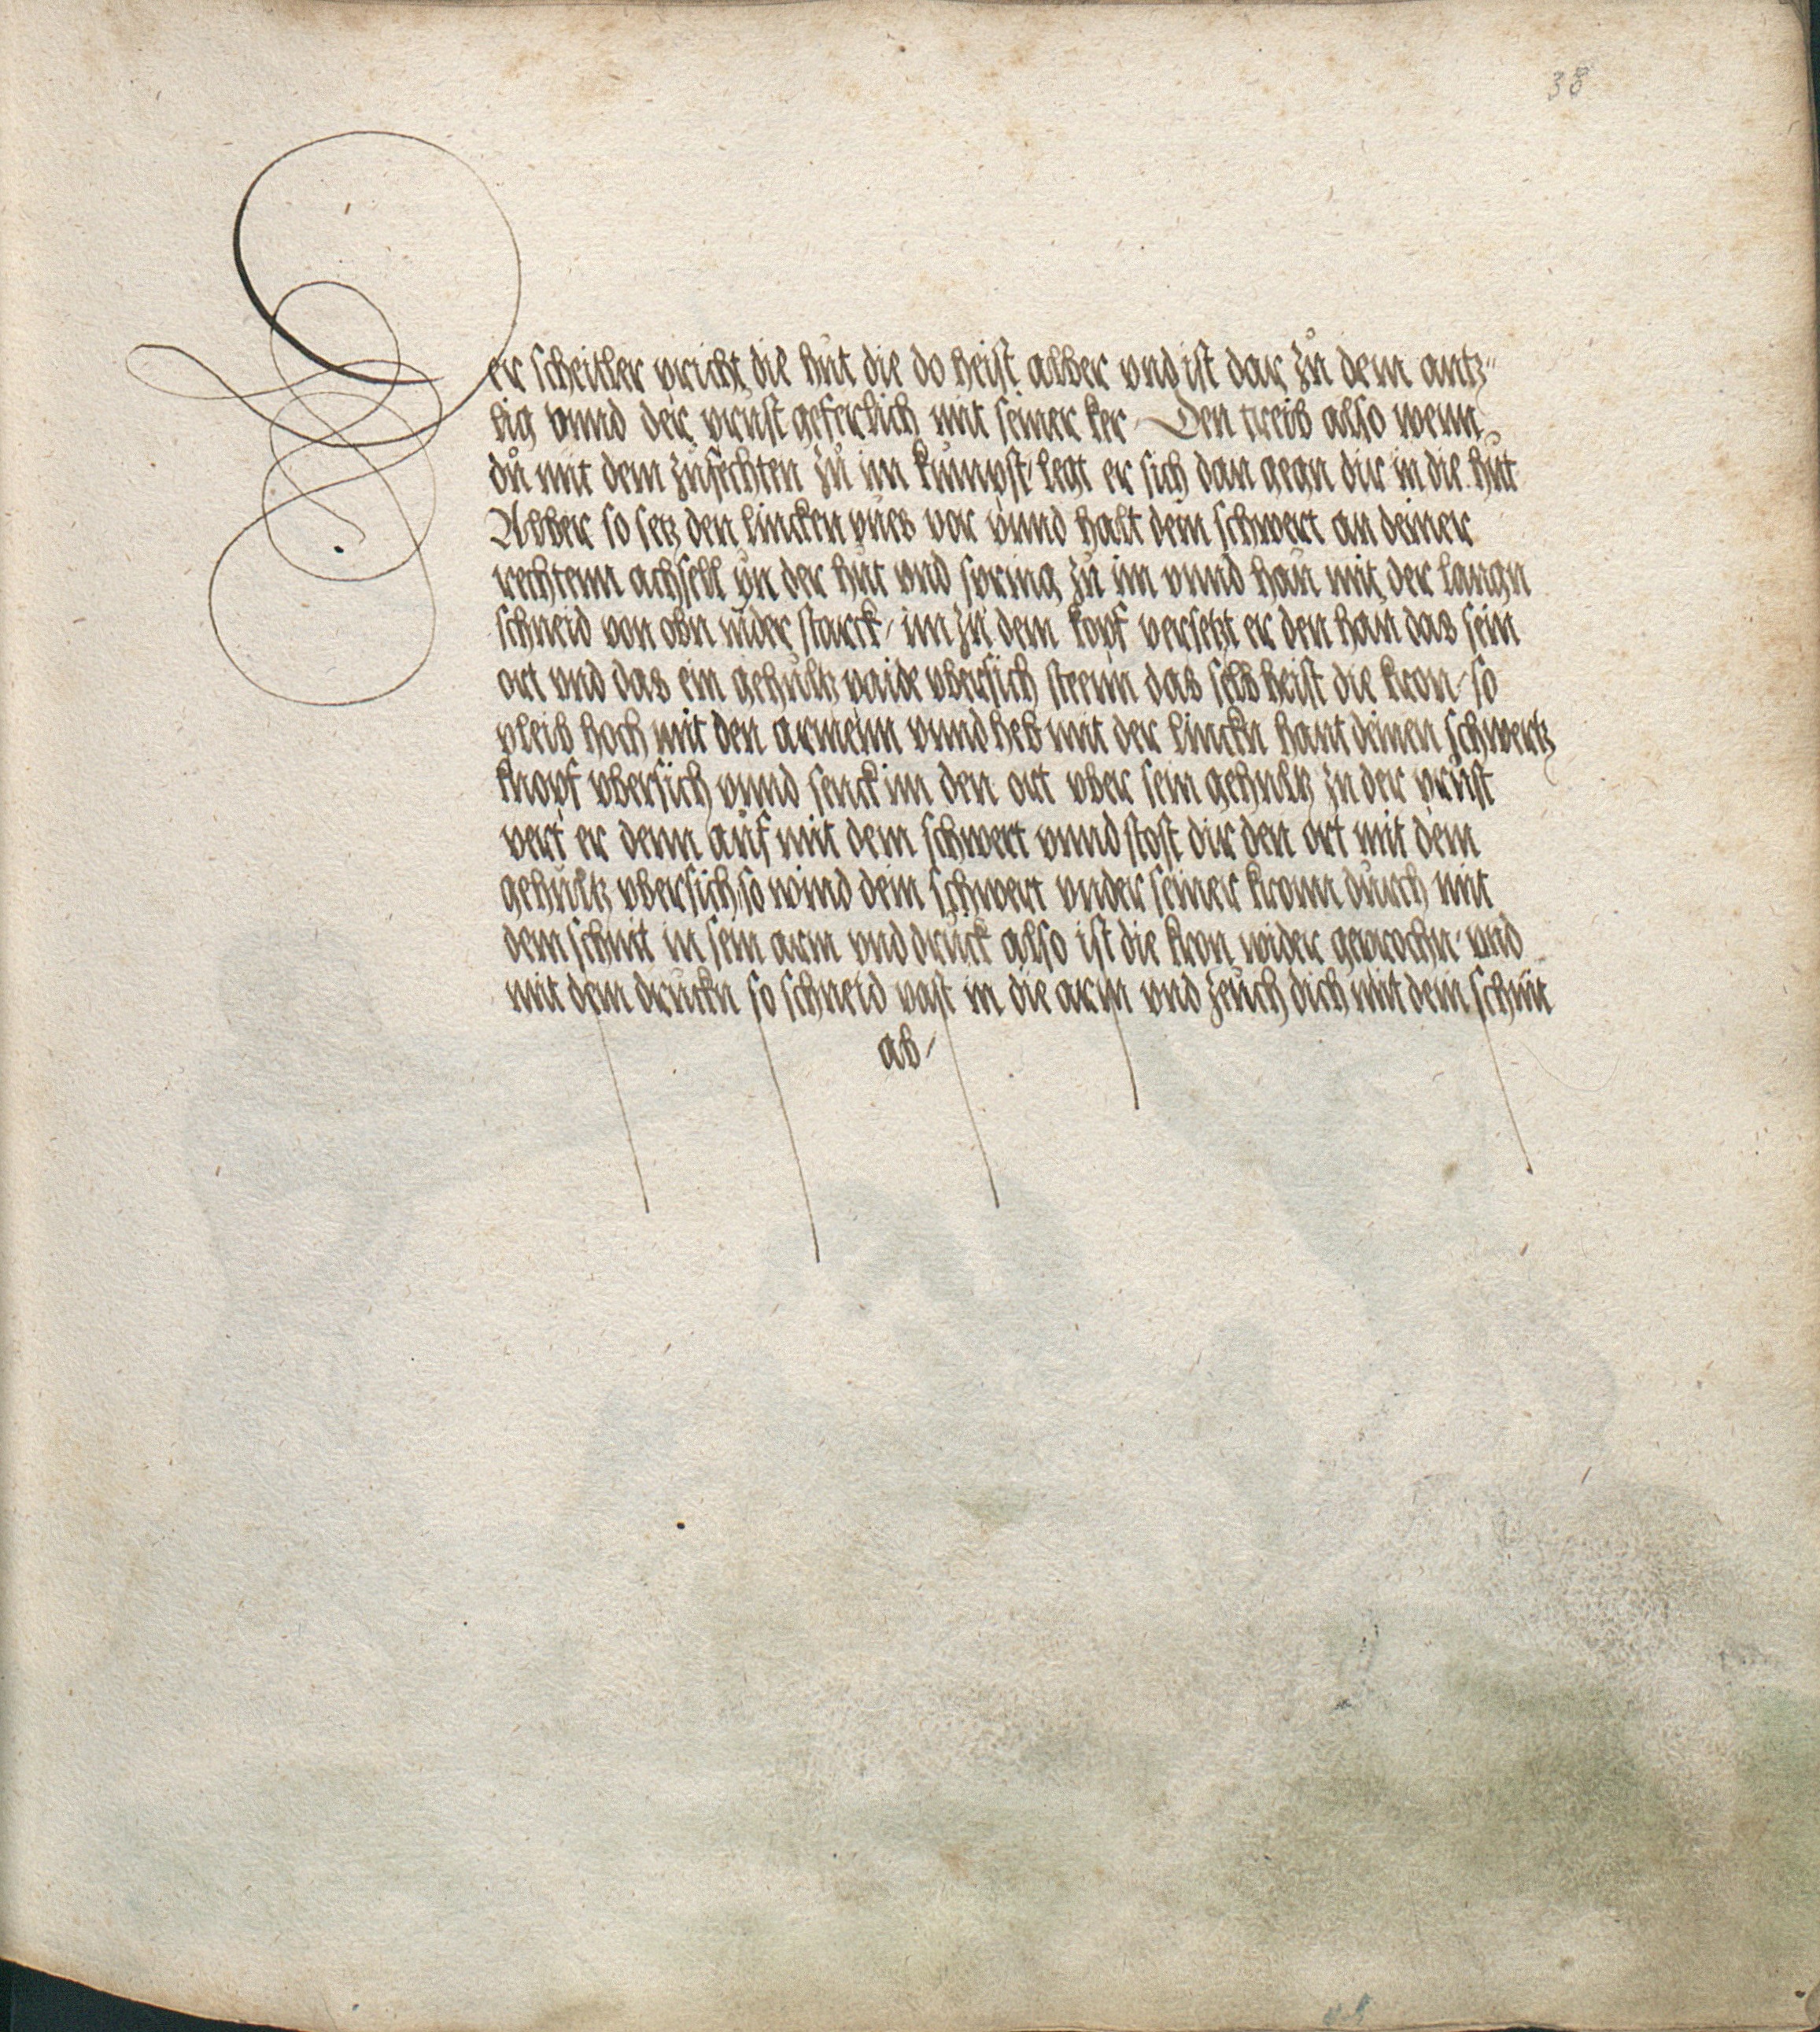 38
Der scheitler pricht die hut die do heist alber vnd ist dar zů dem antz"
lig vnnd der prust geferlich mit seiner ker Den treib also wenn
dů mit dem zůfechten zů im kumpst / legt er sich dan gegn dir in die hůt
Alber so setz den lincken vues vor vnnd halt dein schwert an deiner
rechtenn achsell yn der hůt vnd spring zů im vnnd haů mit der langn
schneid von obn nider starck / im zů dem kopf versetzt er den haů das sein
ort vnd das ein gehultz paide vbersich steenn das selb heist die kron / so
pleib hoch mit den armenn vnnd heb mit der linckn hant deinen schwertz
knopf vbersich vnnd senck im den ort vber sein gehultz zu der prust
vert er denn auf mit dem schwert vnnd stost dir den ort mit dem
gehultz vbersich so wind dein schwert vnder seiner kronn dürch mit
dem schnit in sein arm vnd drůck also ist die kron wider geprochn / vnd
mit dem drůckn so schneid vast in die arm vnd zeůch dich mit dem schnit
ab /